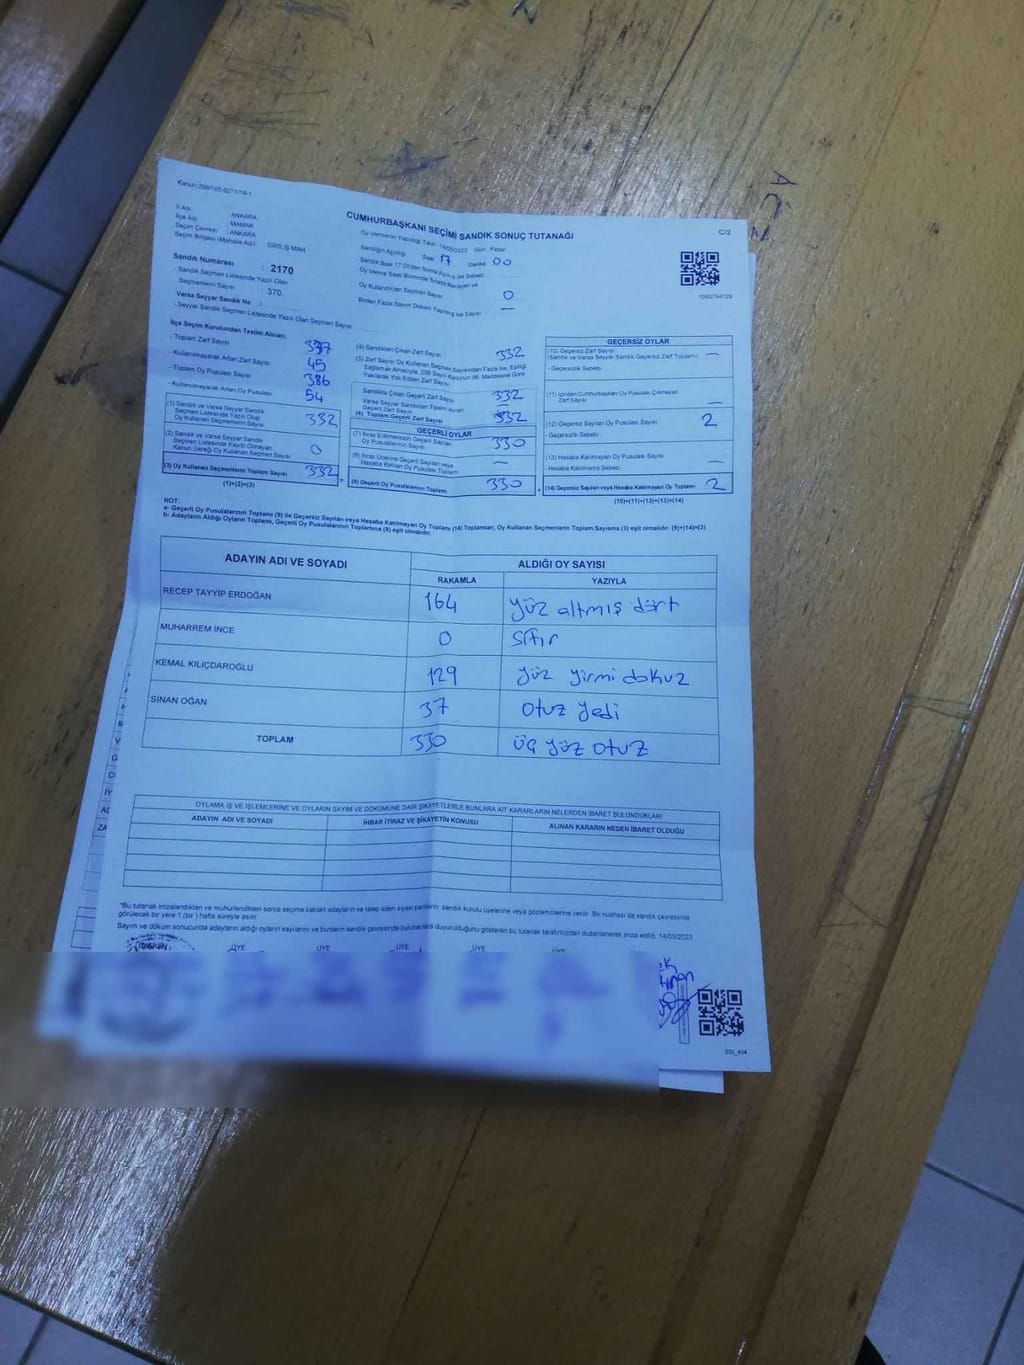 Kanun:298/105 6271/18-1
CUMHURBAŞKANI SEÇİMİ SANDIK SONUÇ TUTANAĞI
C/2
İl Adı : ANKARA
İlçe Adı : MAMAK
Seçim Çevresi : ANKARA
Seçim Bölgesi (Mahalle Adı) : DİRİLİŞ MAH
Sandık Numarası : 2170
- Sandık Seçmen Listesinde Yazılı Olan
Seçmenlerin Sayısı : 370
Varsa Seyyar Sandık No :
- Seyyar Sandık Seçmen Listesinde Yazılı Olan Seçmen Sayısı
Oy Vermenin Yapıldığı Tarih: 14/05/2023 Gün : Pazar
Sandığın Açıldığı Saat 17 Dakika 00
Sandık Saat 17:00'den Sonra Açılmış İse Sebebi
Oy Verme Saati Bitiminde Sırada Bekleyen ve
Oy Kullandırılan Seçmen Sayısı 0
Birden Fazla Sayım Döküm Yapılmış İse Sayısı —
1093794729
İlçe Seçim Kurulundan Teslim Alınan:
- Toplam Zarf Sayısı
- Kullanılmayarak Artan Zarf Sayısı 45
- Toplam Oy Pusulası Sayısı 386
- Kullanılmayarak Artan Oy Pusulası 54
(1) Sandık ve Varsa Seyyar Sandık
Seçmen Listesinde Yazılı Olup
Oy Kullanan Seçmenlerin Sayısı 332
(2) Sandık ve Varsa Seyyar Sandık
Seçmen Listesinde Kaydı Olmayan
Kanun Gereği Oy Kullanan Seçmen Sayısı 0
(3) Oy Kullanan Seçmenlerin Toplam Sayısı 332
(1)+(2)=(3)
(4) Sandıktan Çıkan Zarf Sayısı 332
(5) Zarf Sayısı Oy Kullanan Seçmen Sayısından Fazla İse, Eşitliği
Sağlamak Amacıyla, 298 Sayılı Kanunun 98. Maddesine Göre
Yakılarak Yok Edilen Zarf Sayısı
Sandıkta Çıkan Geçerli Zarf Sayısı 332
Varsa Seyyar Sandıktan Teslim Alınan
Geçerli Zarf Sayısı —
(6) Toplam Geçerli Zarf Sayısı 332
GEÇERLİ OYLAR
(7) İtiraz Edilmeksizin Geçerli Sayılan
Oy Pusulalarının Sayısı 330
(8) İtiraz Üzerine Geçerli Sayılan veya
Hesaba Katılan Oy Pusulası Toplamı —
(9) Geçerli Oy Pusulalarının Toplamı 330
GEÇERSİZ OYLAR
(10) Geçersiz Zarf Sayısı
(Sandık ve Varsa Seyyar Sandık Geçersiz Zarf Toplamı) —
- Geçersizlik Sebebi
(11) İçinden Cumhurbaşkanı Oy Pusulası Çıkmayan
Zarf Sayısı —
(12) Geçersiz Sayılan Oy Pusulası Sayısı 2
- Geçersizlik Sebebi
(13) Hesaba Katılmayan Oy Pusulası Sayısı —
- Hesaba Katılmama Sebebi
(14) Geçersiz Sayılan veya Hesaba Katılmayan Oy Toplamı 2
(10)+(11)+(12)+(13)=(14)
NOT:
a- Geçerli Oy Pusulalarının Toplamı (9) ile Geçersiz Sayılan veya Hesaba Katılmayan Oy Toplamı (14) Toplamları, Oy Kullanan Seçmenlerin Toplam Sayısına (3) eşit olmalıdır. (9)+(14)=(3)
b- Adayların Aldığı Oyların Toplamı, Geçerli Oy Pusulalarının Toplamına (9) eşit olmalıdır.
ADAYIN ADI VE SOYADI ALDIĞI OY SAYISI
RAKAMLA YAZIYLA
RECEP TAYYİP ERDOĞAN 164 yüz altmış dört
MUHARREM İNCE 0 sıfır
KEMAL KILIÇDAROĞLU 129 yüz yirmi dokuz
SİNAN OĞAN 37 otuz yedi
TOPLAM 330 üç yüz otuz
OYLAMA İŞ VE İŞLEMLERİNE VE OYLARIN SAYIM VE DÖKÜMÜNE DAİR ŞİKAYETLERLE BUNLARA AİT KARARLARIN NELERDEN İBARET BULUNDUKLARI
ADAYIN ADI VE SOYADI İHBAR İTİRAZ VE ŞİKAYETİN KONUSU ALINAN KARARIN NEDEN İBARET OLDUĞU
"Bu tutanak imzalandıktan ve mühürlendikten sonra seçime katılan adayların ve talep eden siyasi partilerin sandık kurulu üyelerine veya gözlemcilerine verilir. Bir nüshası da sandık çevresinde
görülecek bir yere 1 (bir ) hafta süreyle asılır.
Sayım ve döküm sonucunda adayların aldığı oyların sayılarını ve bunların sandık çevresinde bulunanlara duyurulduğunu gösteren bu tutanak tarafımızdan düzenlenerek imza edildi. 14/05/2023
BAŞKAN ÜYE ÜYE ÜYE ÜYE ÜYE